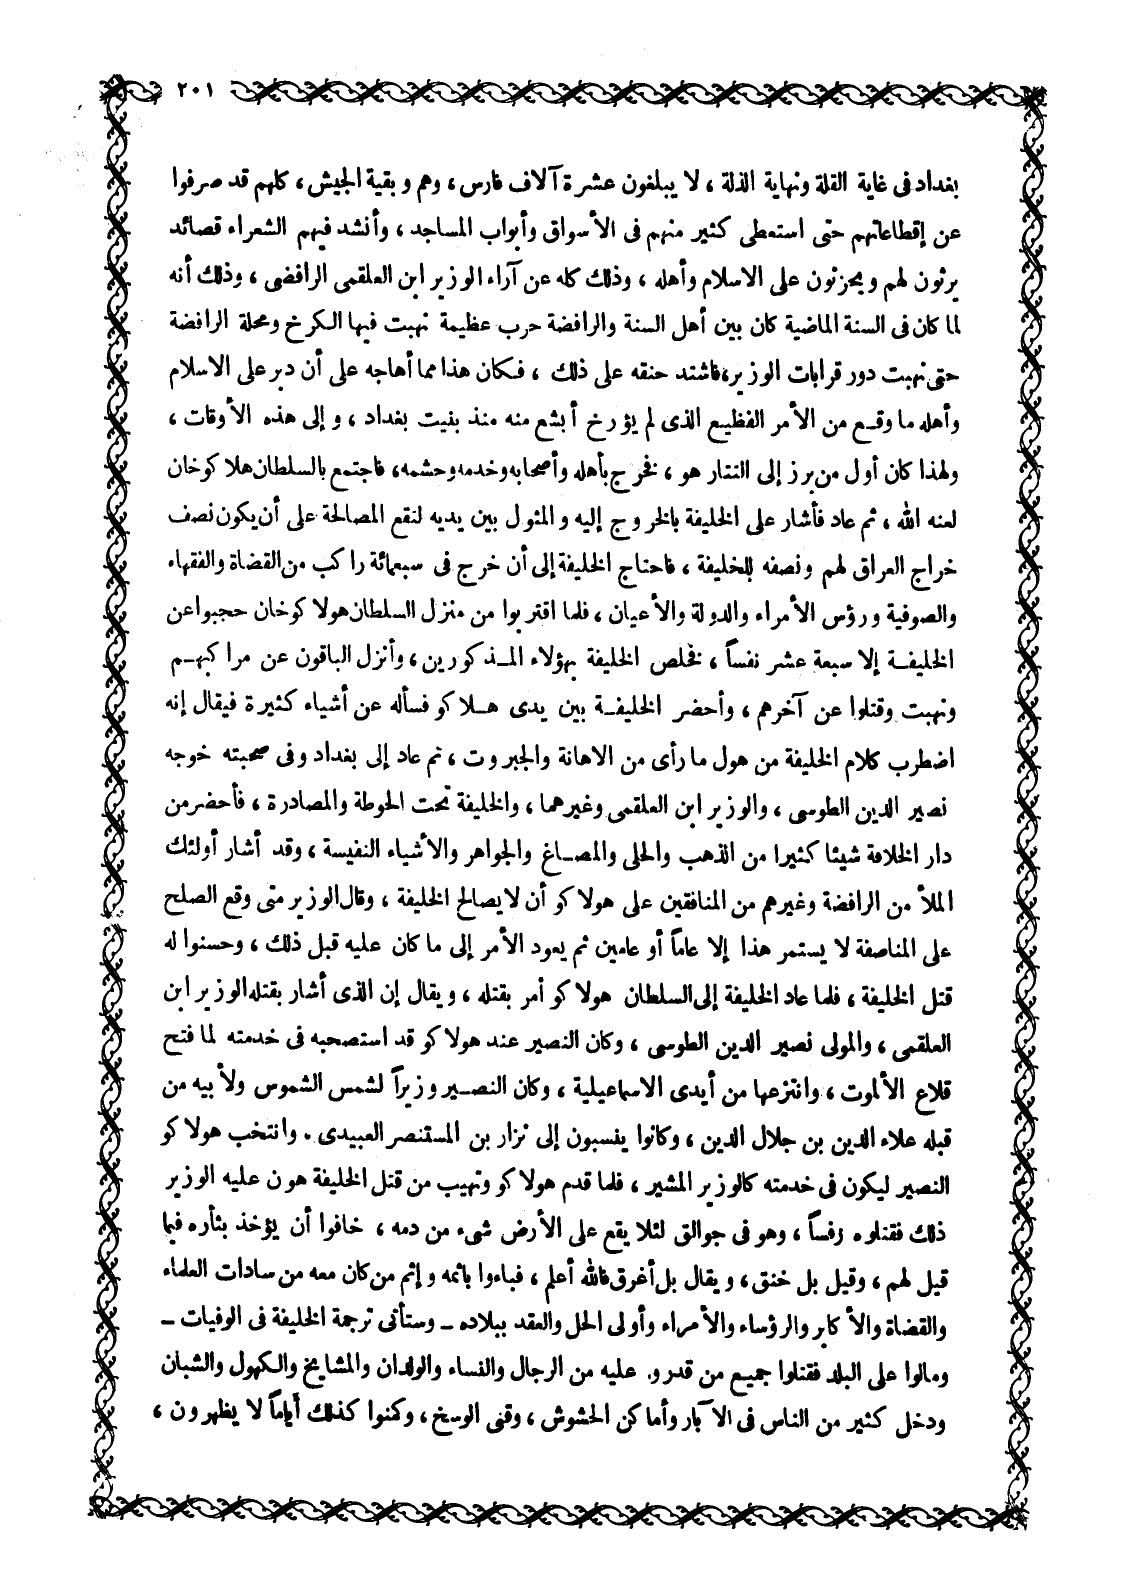 ٢٠١
بغداد فى غاية القلة ونهاية الذلة ، لا يبلغون عشرة آلاف فارس ، وهم و بقية الجيش ، كلهم قد صرفوا
عن إقطاعاتهم حتى استعطى كثير منهم فى الأسواق وأبواب المساجد ، وأنشد فيهم الشعراء قصائد
يرثون لهم ويحزنون على الاسلام وأهله ، وذلك كله عن آراء الوزير ابن العلقمى الرافضى ، وذلك أنه
لما كان فى السنة الماضية كان بين أهل السنة والرافضة حرب عظيمة نهبت فيها الكرخ ومحلة الرافضة
حتى نهبت دور قرابات الوزير، فاشتد حنقه على ذلك ، فكان هذا مما أهاجه على أن دبر على الاسلام
وأهله ما وقع من الأمر الفظيع الذى لم يؤرخ أبشع منه منذ بنيت بغداد ، و إلى هذه الأوقات ،
ولهذا كان أول من برز إلى التتار هو ، فخرج بأهله وأصحابه وخدمه وحشمه، فاجتمع بالسلطان هلاكوخان
لعنه الله ، ثم عاد فأشار على الخليفة بالخروج إليه والمثول بين يديه لتقع المصالحة على أن يكون نصف
خراج العراق لهم ونصفه للخليفة ، فاحتاج الخليفة إلى أن خرج فى سبعمائة راكب من القضاة والفقهاء
والصوفية ورؤس الأمراء والدولة والأعيان ، فلما اقتربوا من منزل السلطان هولاكوخان حجبوا عن
الخليفة إلا سبعة عشر نفساً ، فخلص الخليفة بهؤلاء المذكورين ، وأنزل الباقون عن مراكبهم
ونهبت وقتلوا عن آخرهم ، وأحضر الخليفة بين يدى هلاكو فسأله عن أشياء كثيرة فيقال إنه
اضطرب كلام الخليفة من هول ما رأى من الاهانة والجبروت ، ثم عاد إلى بغداد وفى صحبته خوجه
نصير الدين الطوسى ، والوزير ابن العلقمى وغيرهما ، والخليفة تحت الحوطة والمصادرة ، فأحضر من
دار الخلافة شيئا كثيرا من الذهب والحلى والمصاغ والجواهر والأشياء النفيسة ، وقد أشار أولئك
الملأ من الرافضة وغيرهم من المنافقين على هولاكو أن لا يصالح الخليفة ، وقال الوزير متى وقع الصلح
على المناصفة لا يستمر هذا إلا عاماً أو عامين ثم يعود الأمر إلى ما كان عليه قبل ذلك ، وحسنوا له
قتل الخليفة ، فلما عاد الخليفة إلى السلطان هولاكو أمر بقتله ، ويقال إن الذى أشار بقتله الوزير ابن
العلقمى ، والمولى نصير الدين الطوسى ، وكان النصير عند هولاكو قد استصحبه فى خدمته لما فتح
قلاع الألموت ، وانتزعها من أيدى الاسماعيلية ، وكان النصير وزيراً لشمس الشموس ولأبيه من
قبله علاء الدين بن جلال الدين ، وكانوا ينسبون إلى نزار بن المستنصر العبيدى . وانتخب هولاكو
النصير ليكون فى خدمته كالوزير المشير ، فلما قدم هولاكو وتهيب من قتل الخليفة هون عليه الوزير
ذلك فقتلوه رفساً ، وهو فى جوالق لئلا يقع على الأرض شىء من دمه ، خافوا أن يؤخذ بثأره فيما
قيل لهم ، وقيل بل خنق ، ويقال بل أغرق فالله أعلم ، فباءوا باثمه و إثم من كان معه من سادات العلماء
والقضاة والأكابر والرؤساء والأمراء وأولى الحل والعقد ببلاده ــ وستأتى ترجمة الخليفة فى الوفيات ــ
ومالوا على البلد فقتلوا جميع من قدروا عليه من الرجال والنساء والولدان والمشايخ والكهول والشبان
ودخل كثير من الناس فى الآبار وأماكن الحشوش ، وقنى الوسخ ، وكمنوا كذلك أياماً لا يظهرون ،